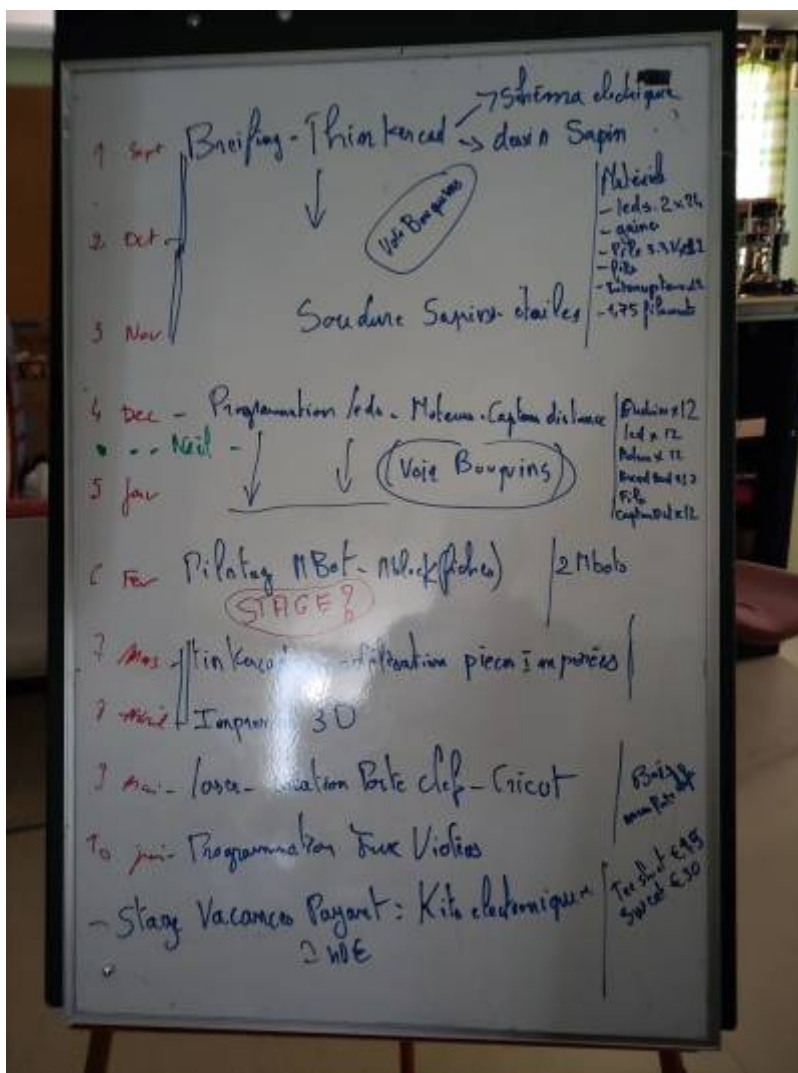 1 Sept Breifing - Thinkercad → Schéma electrique
→ dessin Sapin
Voir Bouquins
Matériel
- leds. 2x24
- gaine
- Pile 3.3V x12
- fils
- Interrupteur x12
- 1,75 filaments
2 Oct -
3 Nov
Soudure Sapins - étoiles
4 Dec - Programmation leds - Moteurs - Capteur distance
x12
led x 12
x 12
x12
Fils
x12
- Noël -
Voir Bouquins
5 Jav
6 Fev Pilotag MBot - Mblock (fiches)
2 Mbots
STAGE ?
7 Mars - tinkercad pieces Imporées
8 Avril - 3D
9 Mai - laser - Porte clef - Cricot
Bois
10 juin - Programmation Jeux Vidéos
- Stage Vacances Payant : Kits electronique
Tee shirt €15
Sweet €30